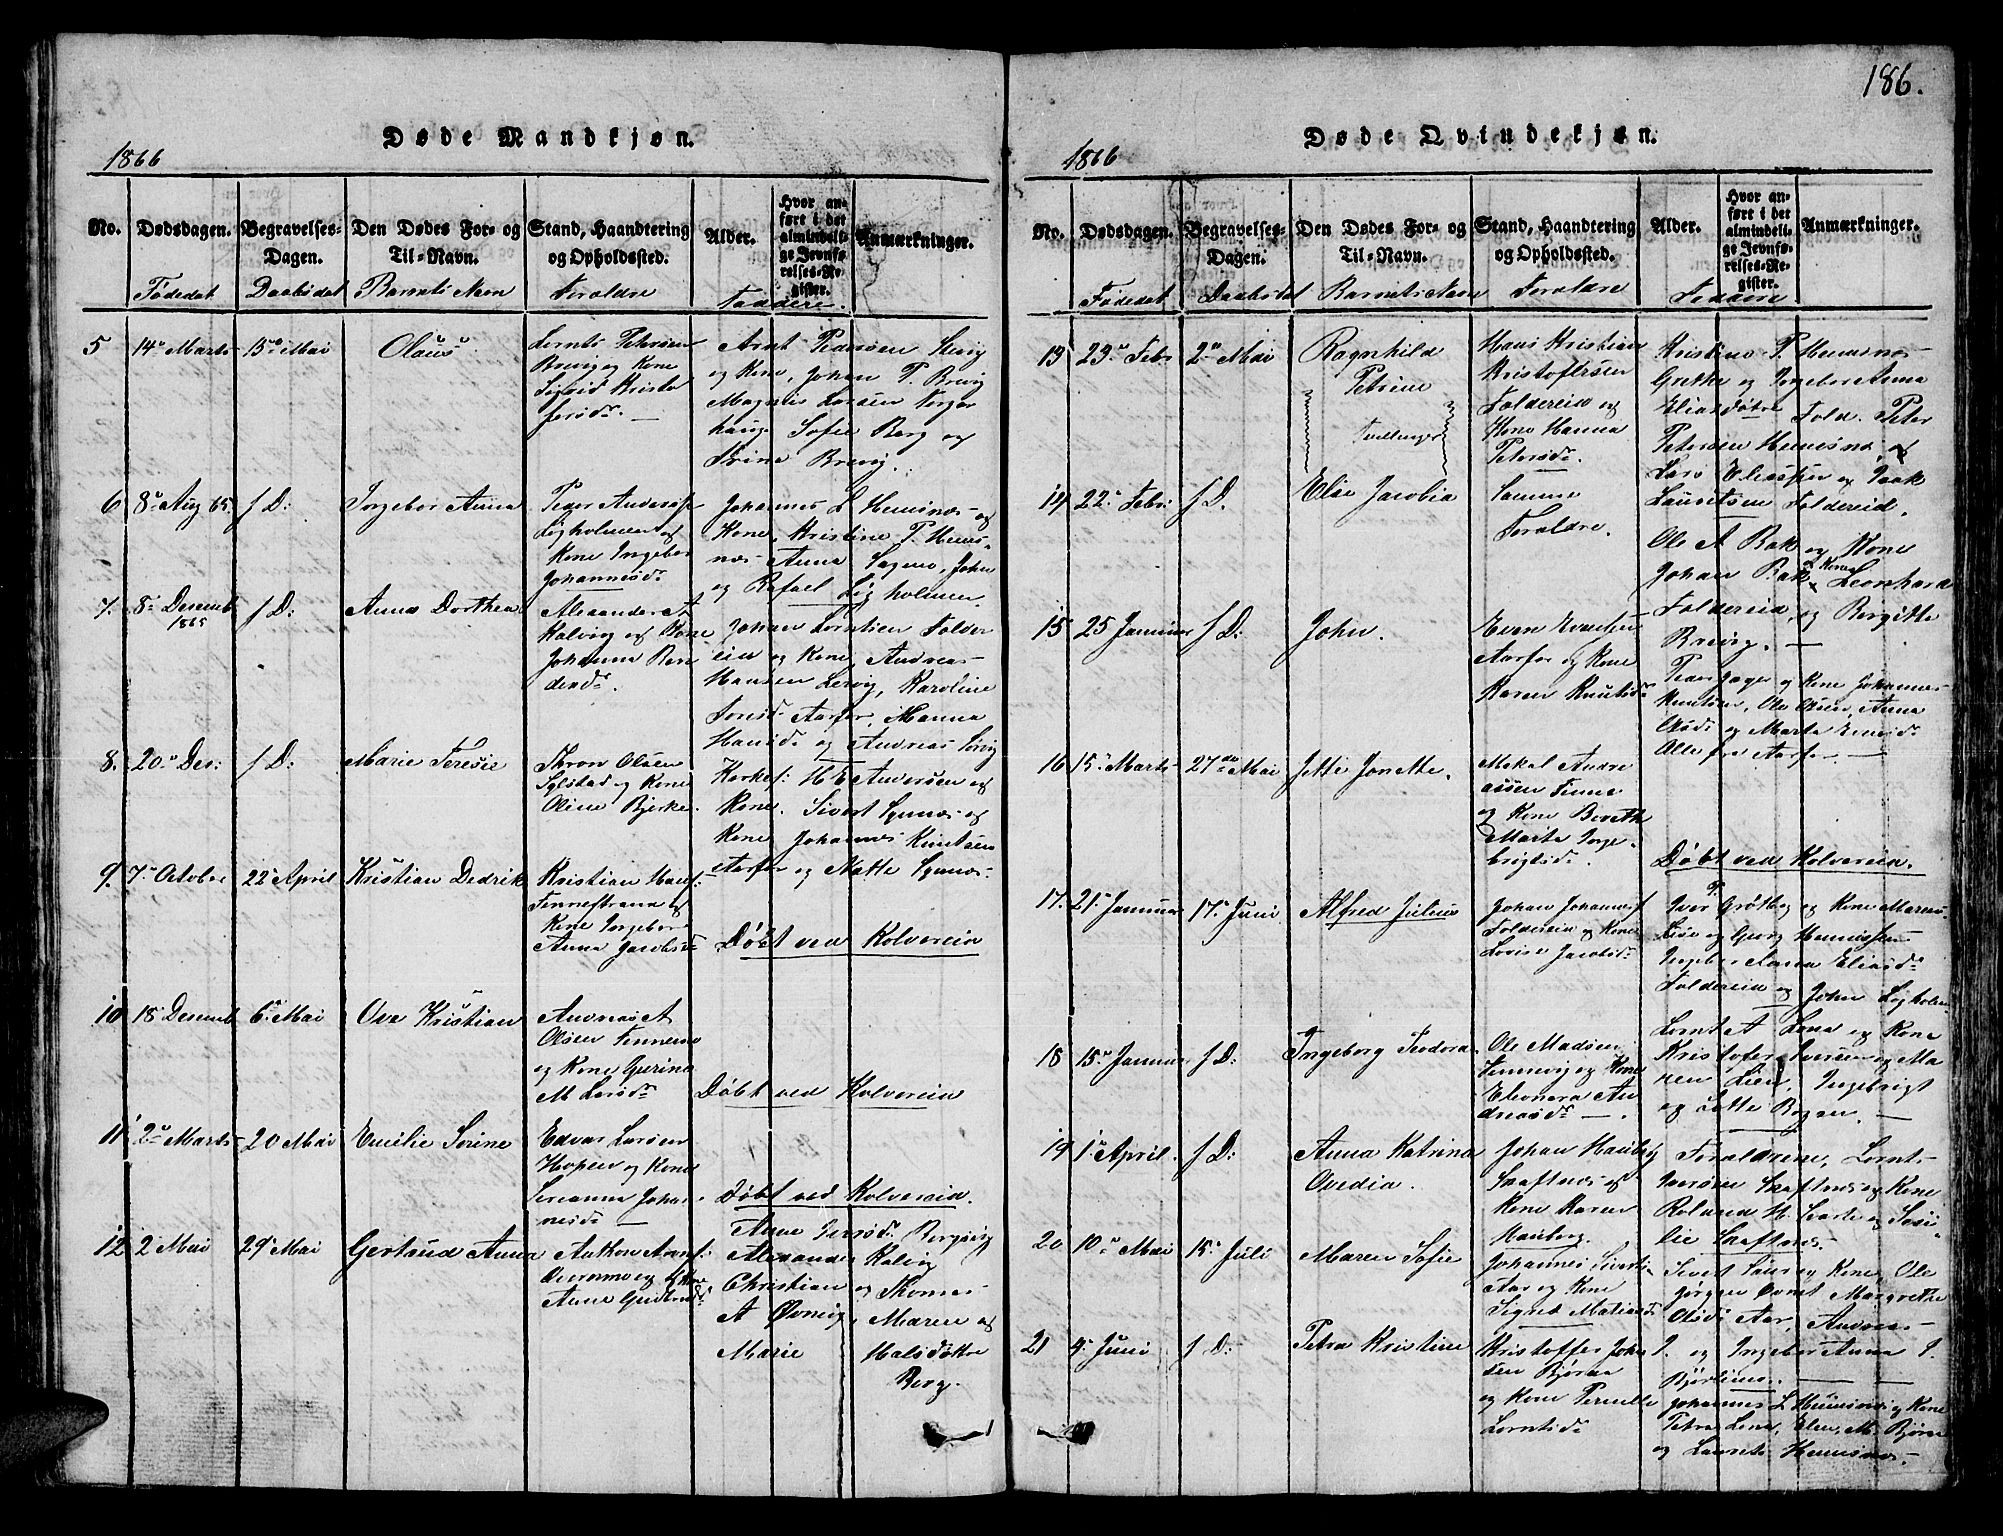 186.
Døde Mandkjøn.
1866
No.
Dødsdagen.
Begravelses-
Dagen.
Den Dødes For- og
Til-Navn.
Stand, Haandtering
og Opholdssted.
Alder.
Hvor an-
ført i det
almindeli-
ge Jevnfø-
relses-Re-
gister.
Anmærkninger.
Fødedat
Daabsdat
Barnets Navn
Foreldre
Faddere.
5 14de Marts 15de Mai Olaus
Lornts Petersen
Brevig og Kone
Sigrid Kristo
fersd.
Arnt Pedersen
og Kone, Johan P. Brevig
Magnus Larsen
Sofie Berg og
Trine Brevig.
6 8de Aug 65. f D: Ingebor Anna
Peder Anders
Løgholmen og
Kone Ingebor
Johannesd.
Johannes L Hemsnæs og
Kone, Kristine P. Hems-
næs Anna Sagmo, John
og Rafael Løgholmen.
7. 8de Desemb f D: Anna Dorthea
1865
Alexander A
Kalvig og Kone
Johanna Ben
diksd.
Johan Lorntsen Folder
eid og Kone, Andreas
Hansen Lervig, Karoline
Tonsd. Aarfor, Hanna
Hansd. og Andreas
8. 20de Des: f D: Marie Teresie
Thron Olsen
Sylstad og Kone
Oline Bjerke.
Kirkes: H E Andersen og
Kone. Sivert Synnes og
Kone Johannes Knutsen
Aarfor og Mette Synnes
9. 7de Octobr 22de April Kristian Dedrik
Kristian Hans
Finnestrand og
Kone Ingebor
Anna Jacobsd.
Døbt ved Kolvereid
10 18 Desemb 6te Mai Ove Kristian
Andreas A
Olsen Finnemo
og Kone Gurina
M Larsd.
Døbt ved Kolvereid
11 2den Marts 20 Mai Emilie Serine
Edvar Larsen
Hopen og Kone
Serianna Johan-
nesd.
Døbt ved Kolvereid.
12 2 Mai 29de Mai Gertrud Anna
Anthon Arns:
Overmo og Kone
Anne Gudbrandsd.
Anne Iversd. Bergsvig
Alexander Kalvig
Christian og Thomas
A Øvrevig, Maren og
Marie Halsdøttre
Berg.
Døde Qvindekjøn.
1866
No.
Dødsdagen.
Begravelses-
Dagen.
Den Dødes For- og
Til-Navn.
Stand, Haandtering
og Opholdssted.
Alder.
Hvor an-
ført i det
almindeli-
ge Jevnfø-
relses-Re-
gister.
Anmærkninger.
Fødedat
Daabsdat
Barnets Navn
Foreldre
Faddere
13 23de Febr 2den Mai Ragnhild
Petrine
Tvillinger
Hans Kristian
Kristofersen
Foldereid og
Kone Hanna
Petersd.
Kristine P. Hemsnæs
Grethe og Ingebor Anna
Eliasdøtre Fold. Peter
Petersen Hemsnæs, og
Lars Eliassen og Isak
Lauritsen Foldereid.
14 22de Febr f D. Else Jacobia
Samme
Foreldre.
Ole A Bak og Kone
Johan Bak og Kone Leonharda
Foldereid og Bergitte
Brevig.
15 25 Januar f D: John.
Even Evensen
Aarfor og Kone
Karen Knutsd.
Peder Jæger og Kone Johannes
Knutsen, Ole Olsen, Anna
Olsd. og Marta Evensd.
Alle fra Aarfor.
16 15de Marts 27de Mai Jette Jonette.
Mikal Andre
assen Finne
og Kone Bereth
Marta Inge-
brigtsd.
Døbt ved Kolvereid.
17. 21de Januar 17de Juni Alfred Julius
Johan Johannes
Foldereid og Kone
Lovise Jacobsd.
Iver P. Grøtbog og Kone Maren
Lise og Georg Hemssen
Ingebor Anna Eliasd.
Foldereid og John Løgholm
18 15de Januar f D: Ingeborg Teodora
Ole Madsen
Finnevig og Kone
Eleonora An
dreasd.
Lornt A Lena og Kone
Kristofer Iversen og Ma
ren Lien, Ingebrigt
og Jette Bogen.
19 1ste April. f D: Anna Katrina
Ovedia.
Johan Hauberg
Skaftnes og
Kone Karen
Hauberg.
Foreldrene, Lornts
Iversen Skaftnes og Kone
Roland H. Svarte og Sosi
lie Skaftnes.
20 10de Mai 15de Juli Maren Sofie
Johannes Siverts
Aar og Kone
Sigrid Matiasd.
Sivert Aar og Kone, Ole
Jørgen Øvret Margrethe
Olsd. Aar, Andreas
P. og Ingebor Anna P.
Bjørlimo.
21 4de Juni f D: Petra Kristine
Kristoffer Johan
sen Bjøraa
og Kone Pernille
Lorntsd.
Johannes L Hemsnes og Kone
Petra Lena, Elen M. Bjøraa
og Laurits Hemsnæs.